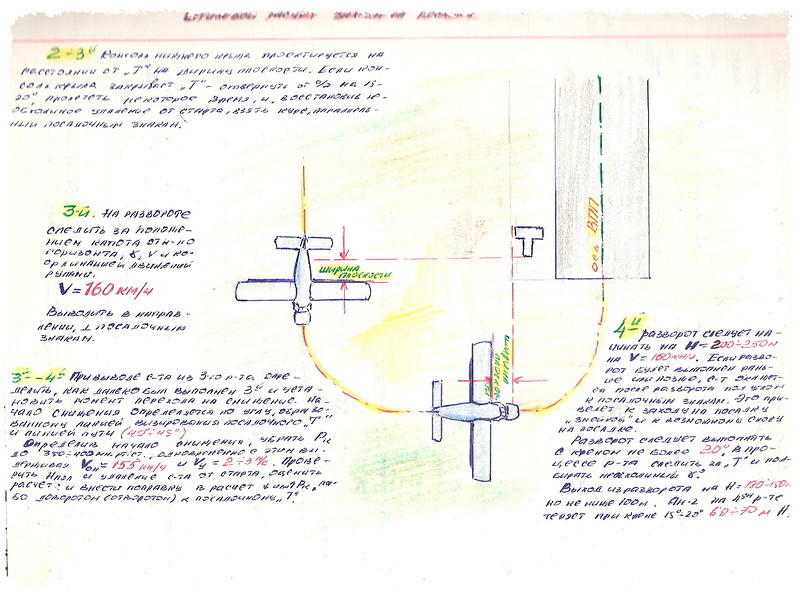 2÷3й Консоль нижнего крыла проектируется на
расстоянии от „Т" на ширину плоскости. Если кон-
соль крыла закрывает „Т" - отвернуть от на 15-
20°, пролететь некоторое время, и, восстановив не-
обходимое удаление от старта, взять курс, параллель-
ный посадочным знакам.
3-й. На развороте
следить за положе-
нием капота отн-но
горизонта, γ, V и ко-
ординацией движений
рулями.
V = 160 км/ч
Выводить в направ-
лении, ⊥ посадочным
знакам.
ширина
плоскости
ось ВПП
ширина
плоскости
3й-4й При выводе с-та из 3-го р-та опре-
делить, как далеко был выполнен 3й и уста-
новить момент перехода на снижение. На-
чало снижения определяется по углу, образо-
ванному линией визирования посадочного „Т"
и линией пути (40°÷45°)
Определив начало снижения, убрать Рк
до одновременно с этим
Vпл = 155 км/ч и Vy = 2-3 м/с. Прове-
рить Нпол и удаление с-та от старта, оценить
расчёт: и внести поправку в расчёт Рк,
бо доворотом (отворотом) к посадочному „Т"
4й
разворот следует на-
чинать на Н = 200÷250м
на V = 160км/ч. Если разво-
рот будет выполнен рань-
ше или позже, с-т окажет-
ся после разворота под углом
к посадочным знакам. Это при-
ведёт к заходу на посадку
„змейкой" и к возможному сносу
на посадке.
Разворот следует выполнять
с креном не более 20°. В про-
цессе р-та следить за „Т" и под-
бирать небольшой γ.
Выход из разворота на Н =
но не ниже 100м. Ан-2 на 4ом р-те
теряет при крене 15°-20° 60÷70м Н.